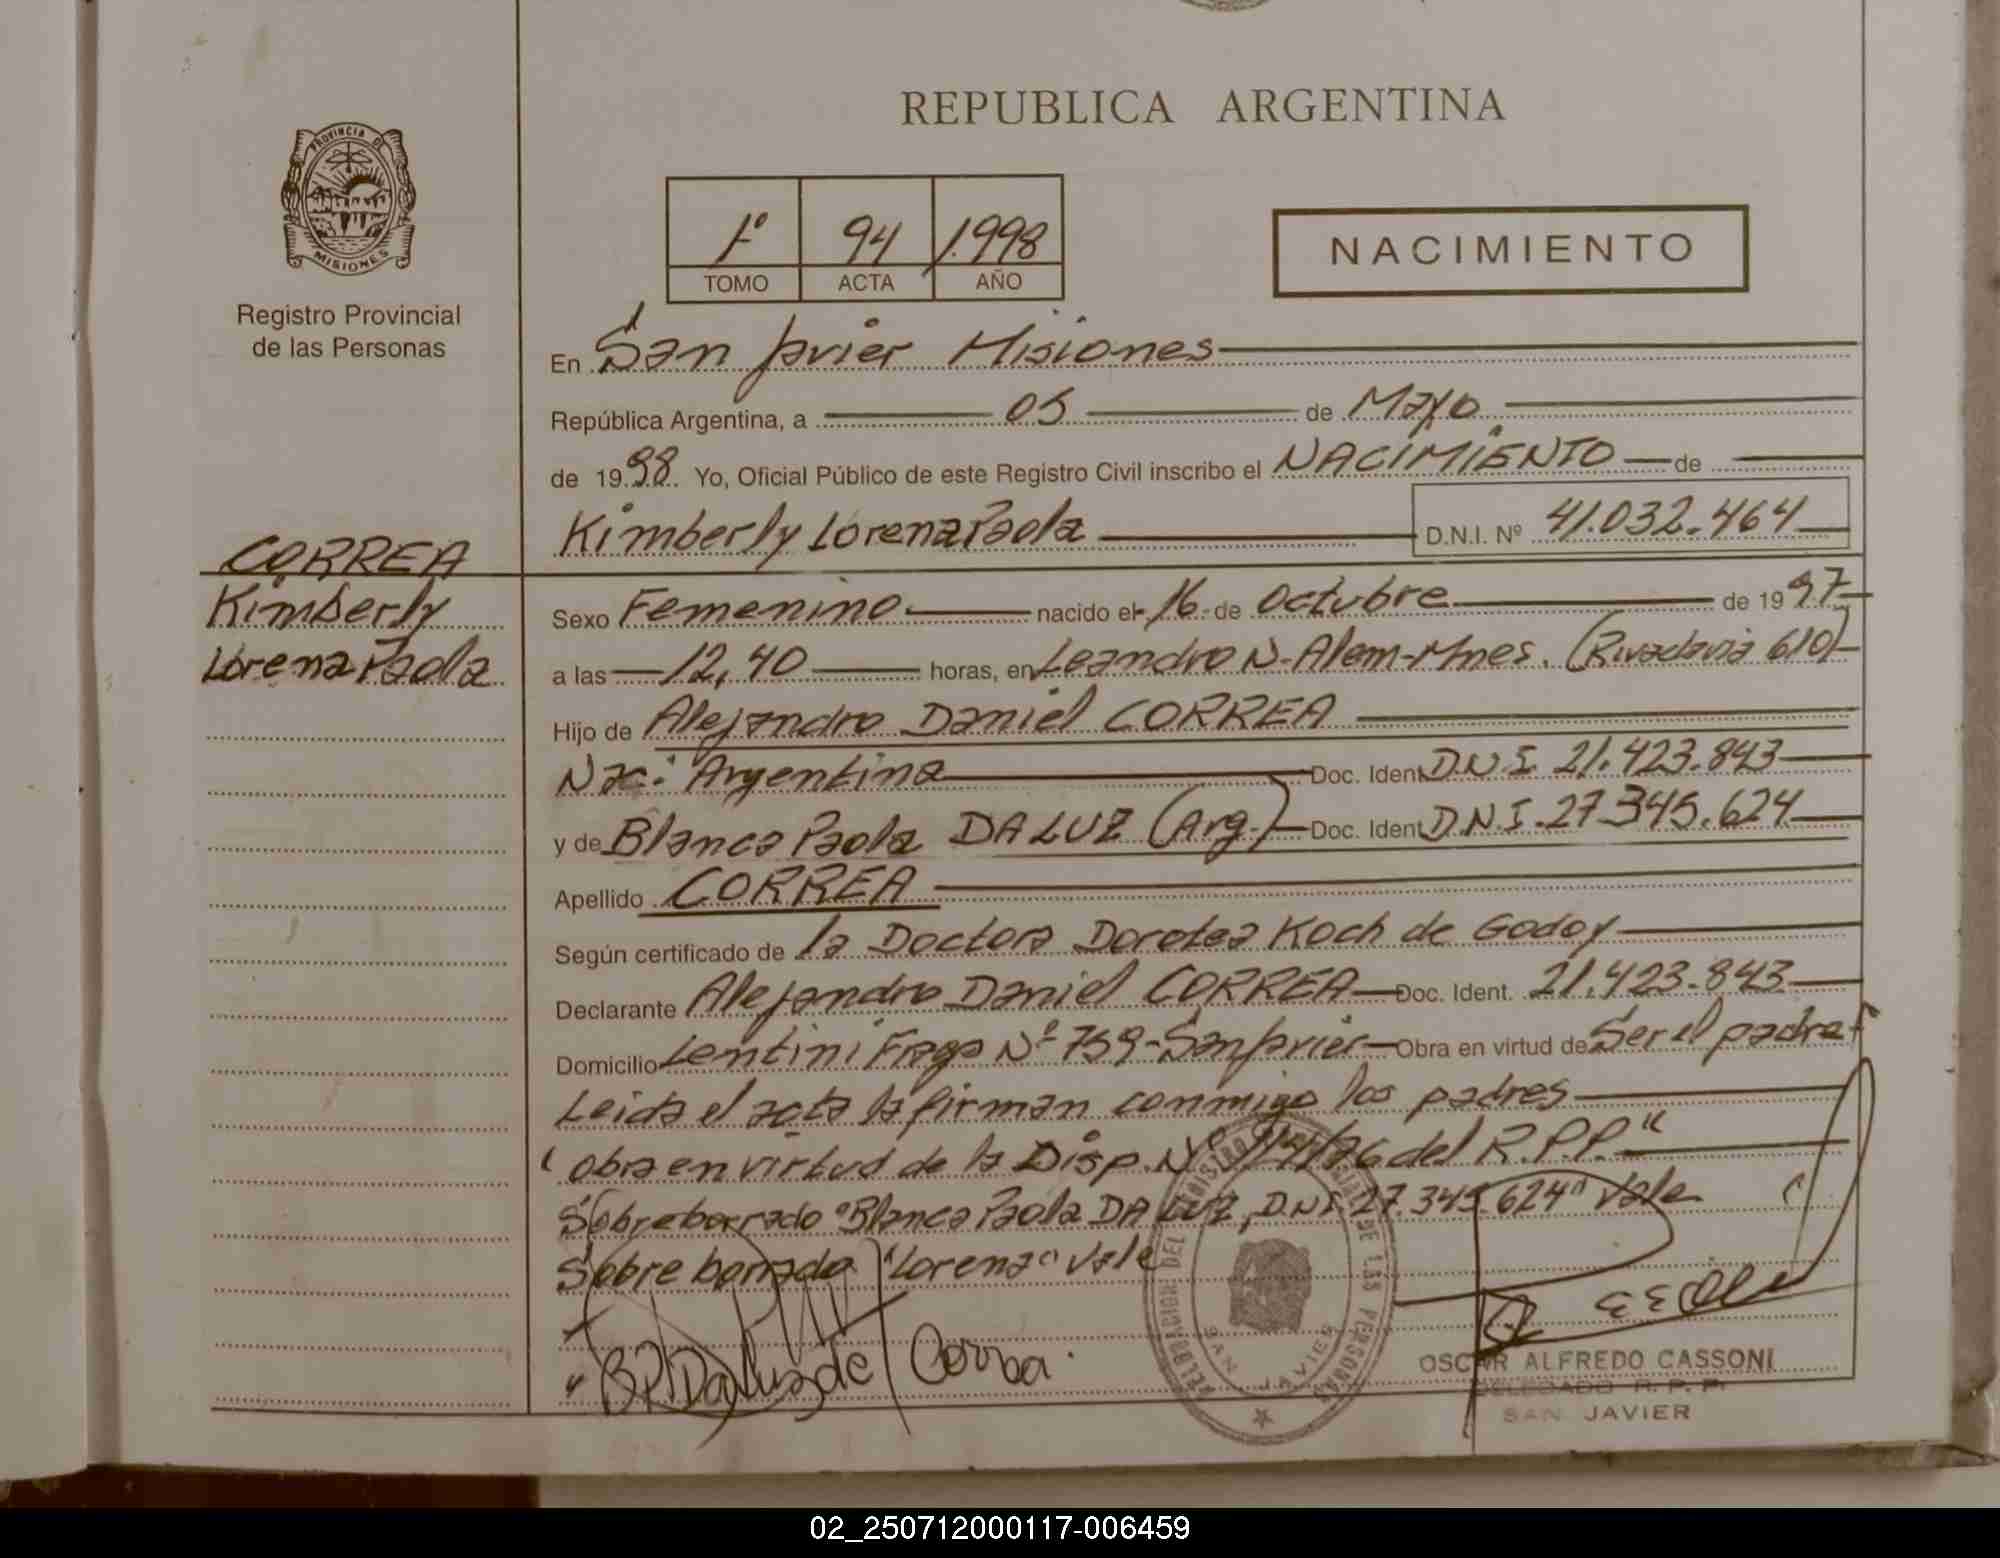 REPUBLICA ARGENTINA
PROVINCIA DE
MISIONES
Registro Provincial
de las Personas
1º 94 1.998
TOMO ACTA AÑO
NACIMIENTO
En San Javier Misiones
República Argentina, a 05 de Mayo
de 1998. Yo, Oficial Público de este Registro Civil inscribo el NACIMIENTO de
Kimberly Lorena Paola D.N.I. Nº 41.032.464
CORREA
Kimberly
Lorena Paola
Sexo Femenino nacido el 16 de Octubre de 1997
a las 12,40 horas, en Leandro N. Alem-Mnes. (Rivadavia 610)
Hijo de Alejandro Daniel CORREA
Nac: Argentina Doc. Ident. D.N.I. 21.423.843
y de Blanca Paola DA LUZ (Arg.) Doc. Ident. D.N.I. 27.345.624
Apellido CORREA
Según certificado de la Doctora Dorotea Koch de Godoy
Declarante Alejandro Daniel CORREA Doc. Ident. 21.423.843
Domicilio Lentini Fraga Nº 759-San Javier Obra en virtud de Ser el padre
Leida el acta la firman conmigo los padres
"Obra en virtud de la Disp. Nº del R.P.P."
Sobreborrado "Blanca Paola DA LUZ, D.N.I. 27.345.624" Vale
Sobre borrado "Lorena" Vale
B.P. Da Luz de Correa.
DELEGACION DEL REGISTRO DE LAS PERSONAS
SAN JAVIER
OSCAR ALFREDO CASSONI
DELEGADO R. P. P.
SAN JAVIER
02_250712000117-006459